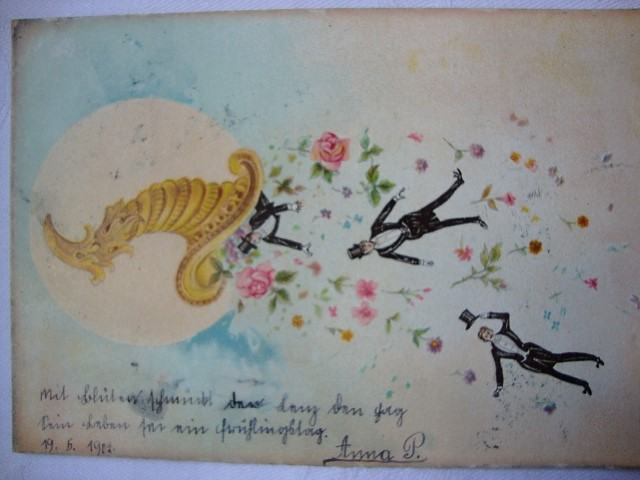 Mit Blüten schmückt der Lenz den Hag
Dein Leben sei ein Frühlingstag.
19. 6. 1902.
Anna P.